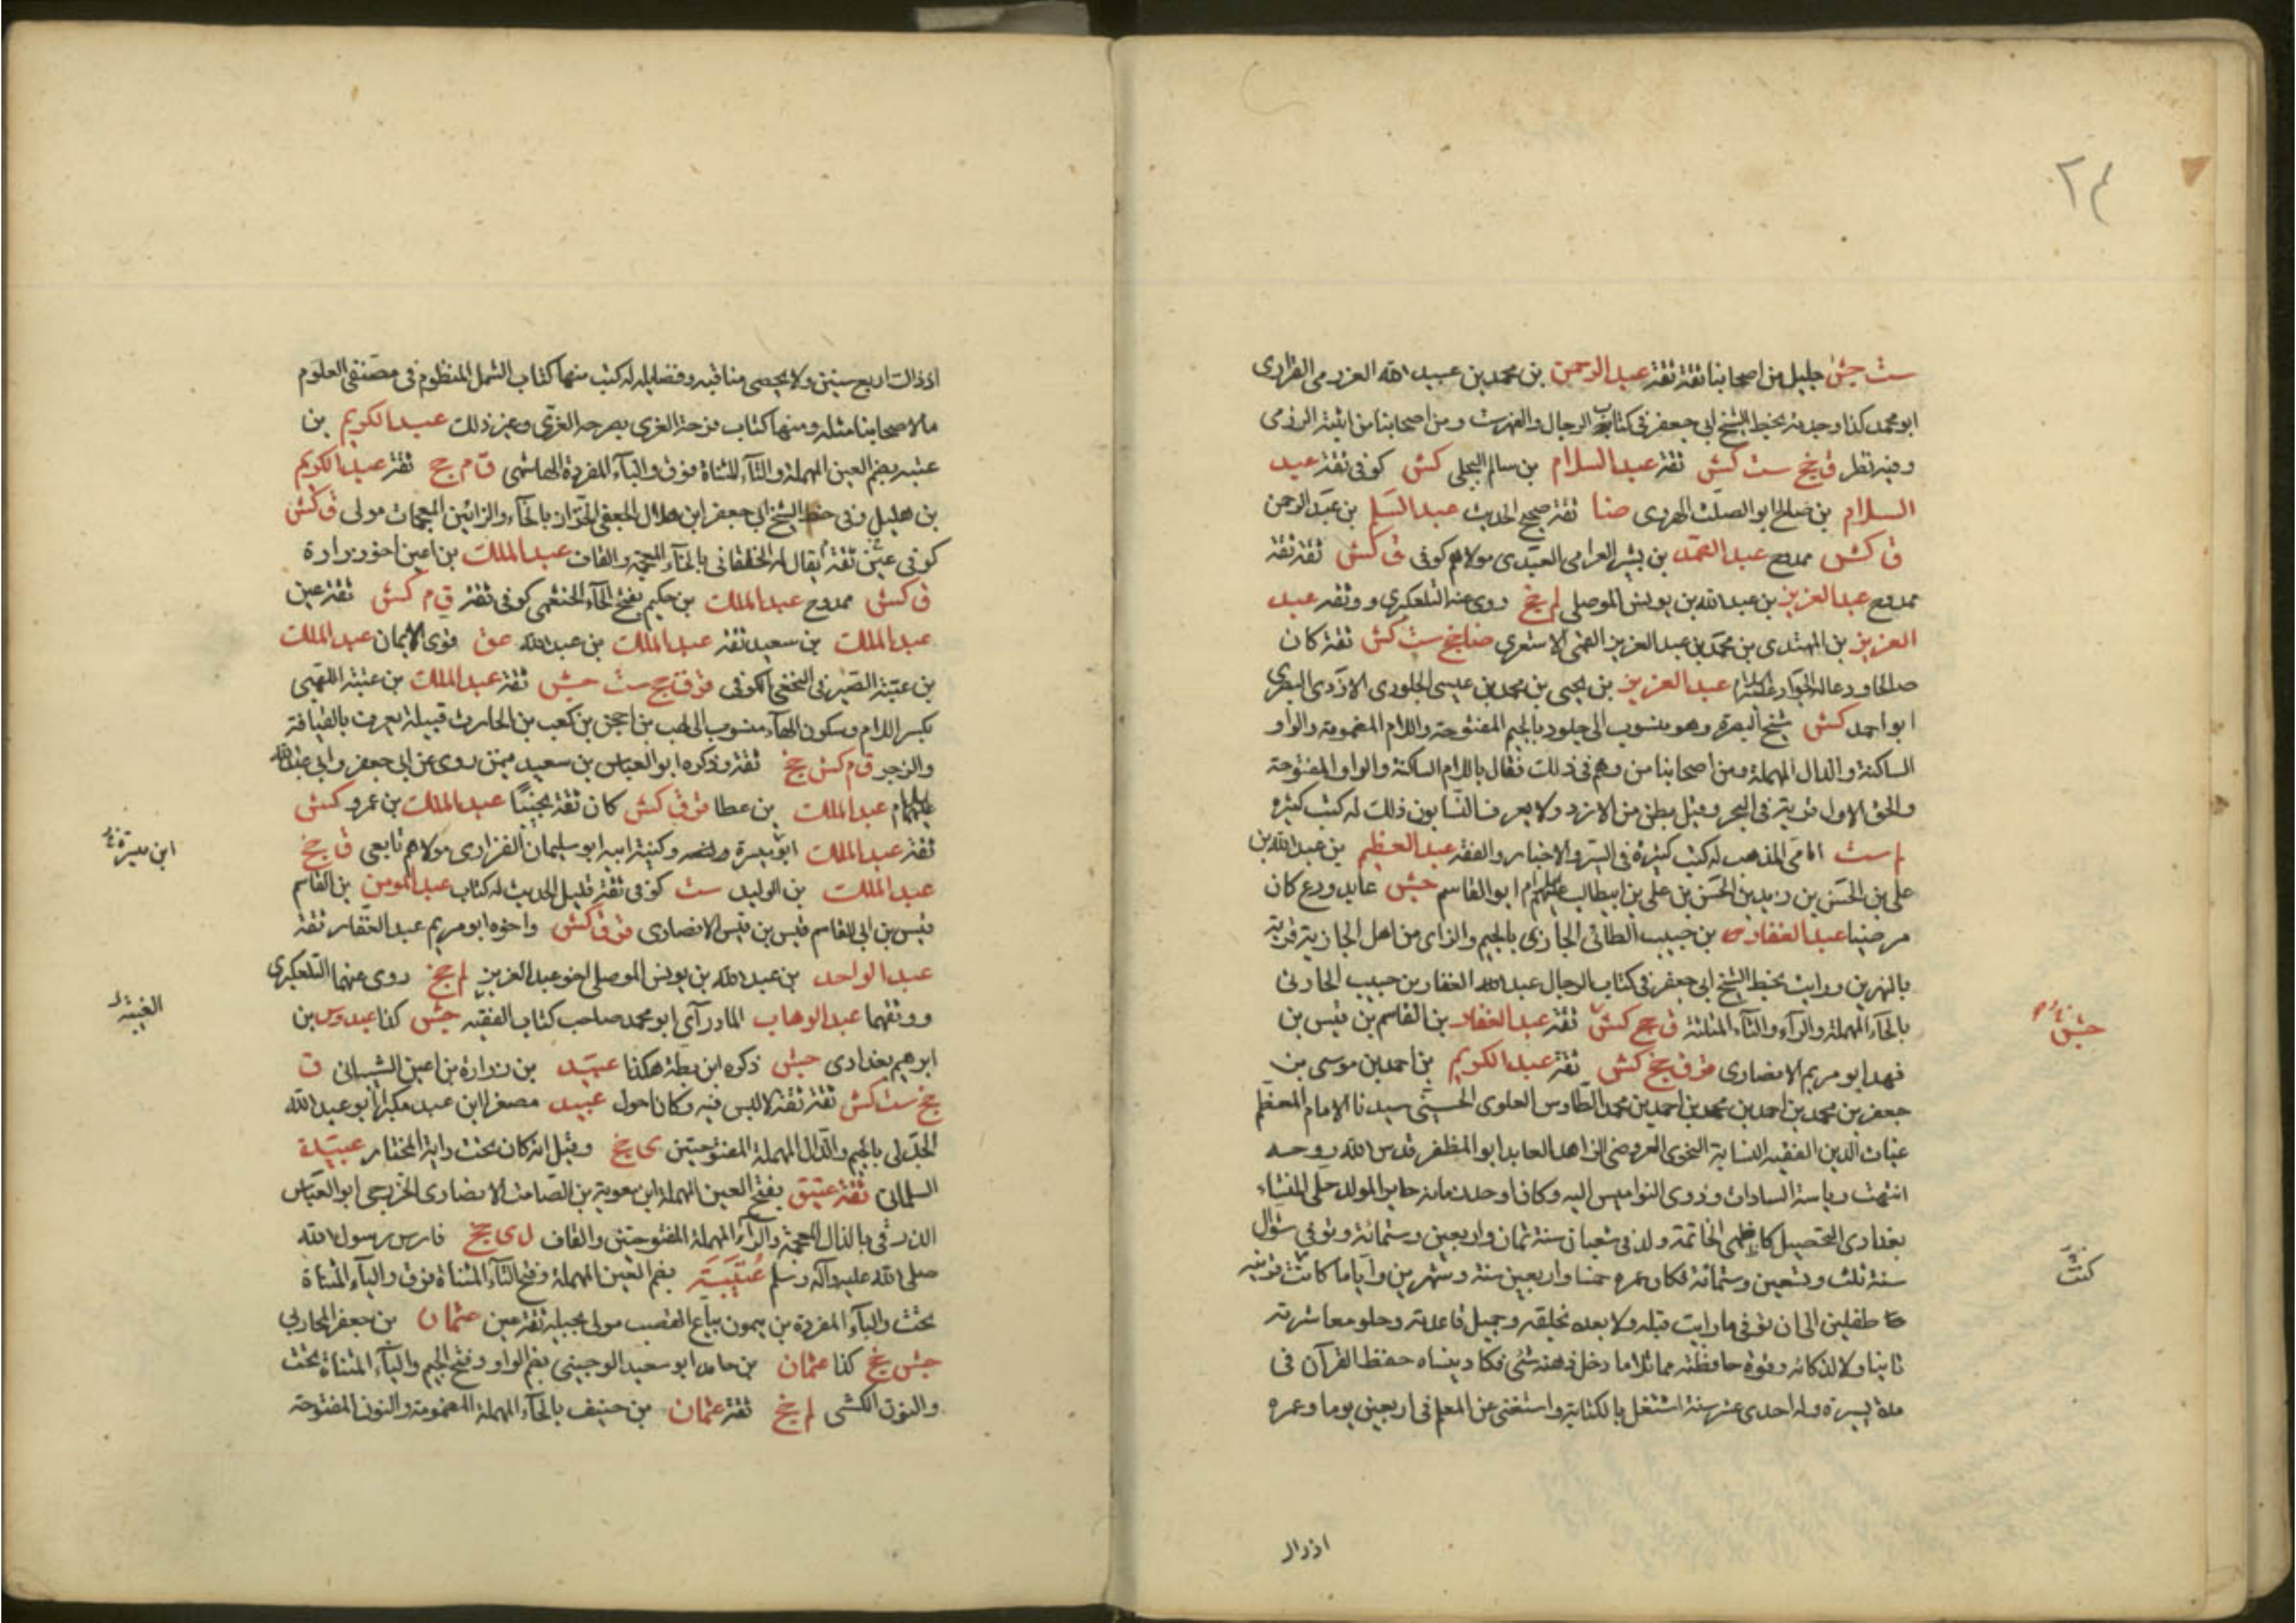 ٢٤
ست جش جليل من اصحابنا ثقة ثقة عبد الرحمن بن محمد بن عبيد الله العزرمى الفزارى
ابو محمد كذا وجدته بخط الشيخ ابى جعفر فى كتاب الرجال والفهرست ومن اصحابنا من اثبته الرزمى
وفيه نظر ق جخ ست كش ثقة عبد السلام بن سالم البجلى كش كوفى ثقة عبد
السلام بن صالح ابو الصلت الهروى ضا ثقة صحيح الحديث عبد السلم بن عبد الرحمن
ق كش ممدوح عبد الصمد بن بشير العرامى العبدى مولاهم كوفى ق كش ثقة ثقة
ممدوح عبد العزيز بن عبد الله بن يونس الموصلى لم جخ روى عنه التلعكبرى ووثقه عبد
العزيز بن المهتدى بن محمد بن عبد العزيز القمى الاشعرى ضا جخ ست كش ثقة كان
صالحا ودعا له الجواد عليه السلام عبد العزيز بن يحيى بن محمد بن عيسى الجلودى الازدى البصرى
ابو احمد كش شيخ البصرة وهو منسوب الى جلود بالجيم المفتوحة واللام المضمومة والواو
الساكنة والدال المهملة ومن اصحابنا من وهم فى ذلك فقال باللام الساكنة والواو المفتوحة
والحق الاول قرية فى البحر وقيل بطن من الازد ولا يعرف النسابون ذلك له كتب كثيرة
لم ست امامى المذهب له كتب كثيرة فى السير والاخبار والفقه عبد العظيم بن عبد الله بن
على بن الحسن بن زيد بن الحسن بن على بن ابيطالب عليهم السلام ابو القاسم جش عابد ورع كان
مرضيا عبد الغفار بن حبيب الطائى الجازى بالجيم والزاى من اهل الجازية قرية
بالنهرين ورايت بخط الشيخ ابى جعفر فى كتاب الرجال عبد الغفار بن حبيب الحارثى
بالحاء المهملة والراء والثاء المثلثة ق جخ كش ثقة عبد الغفار بن القاسم بن قيس بن
فهد ابو مريم الانصارى قر ق جخ كش ثقة عبد الكريم بن احمد بن موسى بن
جعفر بن محمد بن احمد بن محمد بن احمد بن محمد الطاوس العلوى الحسنى سيدنا الامام المعظم
غياث الدين الفقيه النسابة النحوى العروضى الزاهد العابد ابو المظفر قدس الله روحه
انتهت رياسة السادات وذوى النواميس اليه وكان اوحد زمانه حايرى المولد حلى المنشاء
بغدادى التحصيل كاظمى الخاتمة ولد فى شعبان سنة ثمان واربعين وستمائة وتوفى شوال
سنة ثلث وتسعين وستمائة فكان عمره خمسا واربعين سنة وشهرين واياما كانت قرينه
طفلين الى ان توفى ما رايت قبله ولا بعده بخلقه وجميل قاعدته وحلو معاشرته
ثانيا ولا لذكائه وقوة حافظته مماثلا ما دخل ذهنه شئ فكاد ينساه حفظ القرآن فى
مدة يسيرة وله احدى عشر سنة اشتغل بالكتابة واستغنى عن المعلم فى اربعين يوما وعمره
جش
كنت
اذ ذاك
اذ ذاك اربع سنين ولا يحصى مناقبه وفضايله له كتب منها كتاب الشمل المنظوم فى مصنفى العلوم
ما لاصحابنا مثله ومنها كتاب فرحة الغرى بصرحة الغرى وغير ذلك عبد الكريم بن
عتبه بضم العين المهملة والتاء المثناة فوق والباء المفردة الهاشمى ق م جخ ثقة عبد الكريم
بن هليل وفى خط الشيخ ابى جعفر ابن هلال الجعفى الخزاز بالخاء والزائين المعجمات مولى ق كش
كوفى عين ثقة يقال له الخلقانى بالخاء المعجمة والقاف عبد الملك بن اعين اخو زرارة
ق كش ممدوح عبد الملك بن حكيم بفتح الحاء الخثعمى كوفى ثقة ق م كش ثقة عين
عبد الملك بن سعيد ثقة عبد الملك بن عبد الله عق قوى الايمان عبد الملك
بن عتبة الصيرفى النخعى الكوفى قر ق جخ ست جش ثقة عبد الملك بن عتبة اللهبى
بكسر اللام وسكون الهاء منسوب الى لهب بن احجن بن كعب بن الحارث قبيلة يعرف بالقيافة
والزجر ق م كش جخ ثقة وذكره ابو العباس بن سعيد فيمن روى عن ابى جعفر وابى عبد الله
عليهما السلام عبد الملك بن عطا قر ق كش كان ثقة نجيبا عبد الملك بن عمرو كش
ثقة عبد الملك ابو ميسرة وكنية ابيه ابو سليمان الفزارى مولاهم تابعى ق جخ
عبد الملك بن الوليد ست كوفى ثقة قليل الحديث له كتاب عبد المومن بن القاسم
قيس بن ابى القاسم قيس بن قيس الانصارى قر ق كش واخوه ابو مريم عبد الغفار ثقة
عبد الواحد بن عبد الله بن يونس الموصلى اخو عبد العزيز لم جخ روى عنهما التلعكبرى
ووثقهما عبد الوهاب المادرآى ابو محمد صاحب كتاب الفقيه جش كذا عبدوس بن
ابرهيم بغدادى جش ذكره ابن بطة هكذا عبيد بن زرارة بن اعين الشيبانى ق
جخ ست كش ثقة ثقة لا لبس فيه وكان احول عبيد مصغرا ابن عبد مكبرا ابو عبد الله
الجدلى بالجيم والدال المهملة المفتوحتين ى جخ وقيل انه كان تحت راية المختار عبيدة
السلمانى ثقة عتيق بفتح العين المهملة ابن معوية بن الصامت الانصارى الخزرجى ابو العياش
الذرقى بالذال المعجمة والراء المهملة المفتوحتين والقاف ل ى جخ فارس رسول الله
صلى الله عليه وآله وسلم عتيبة بضم العين المهملة وفتح التاء المثناة فوق والياء المثناة
تحت والباء المفردة بن ميمون بياع القصب مولى بجيلة ثقة عين عثمان بن جعفر المحاربى
جش جخ كذا عثمان بن حامد ابو سعيد الوجينى بضم الواو وفتح الجيم والياء المثناة تحت
والنون الكشى لم جخ ثقة عثمان بن حنيف بالحاء المهملة المضمومة والنون المفتوحة
ابن ميسرة